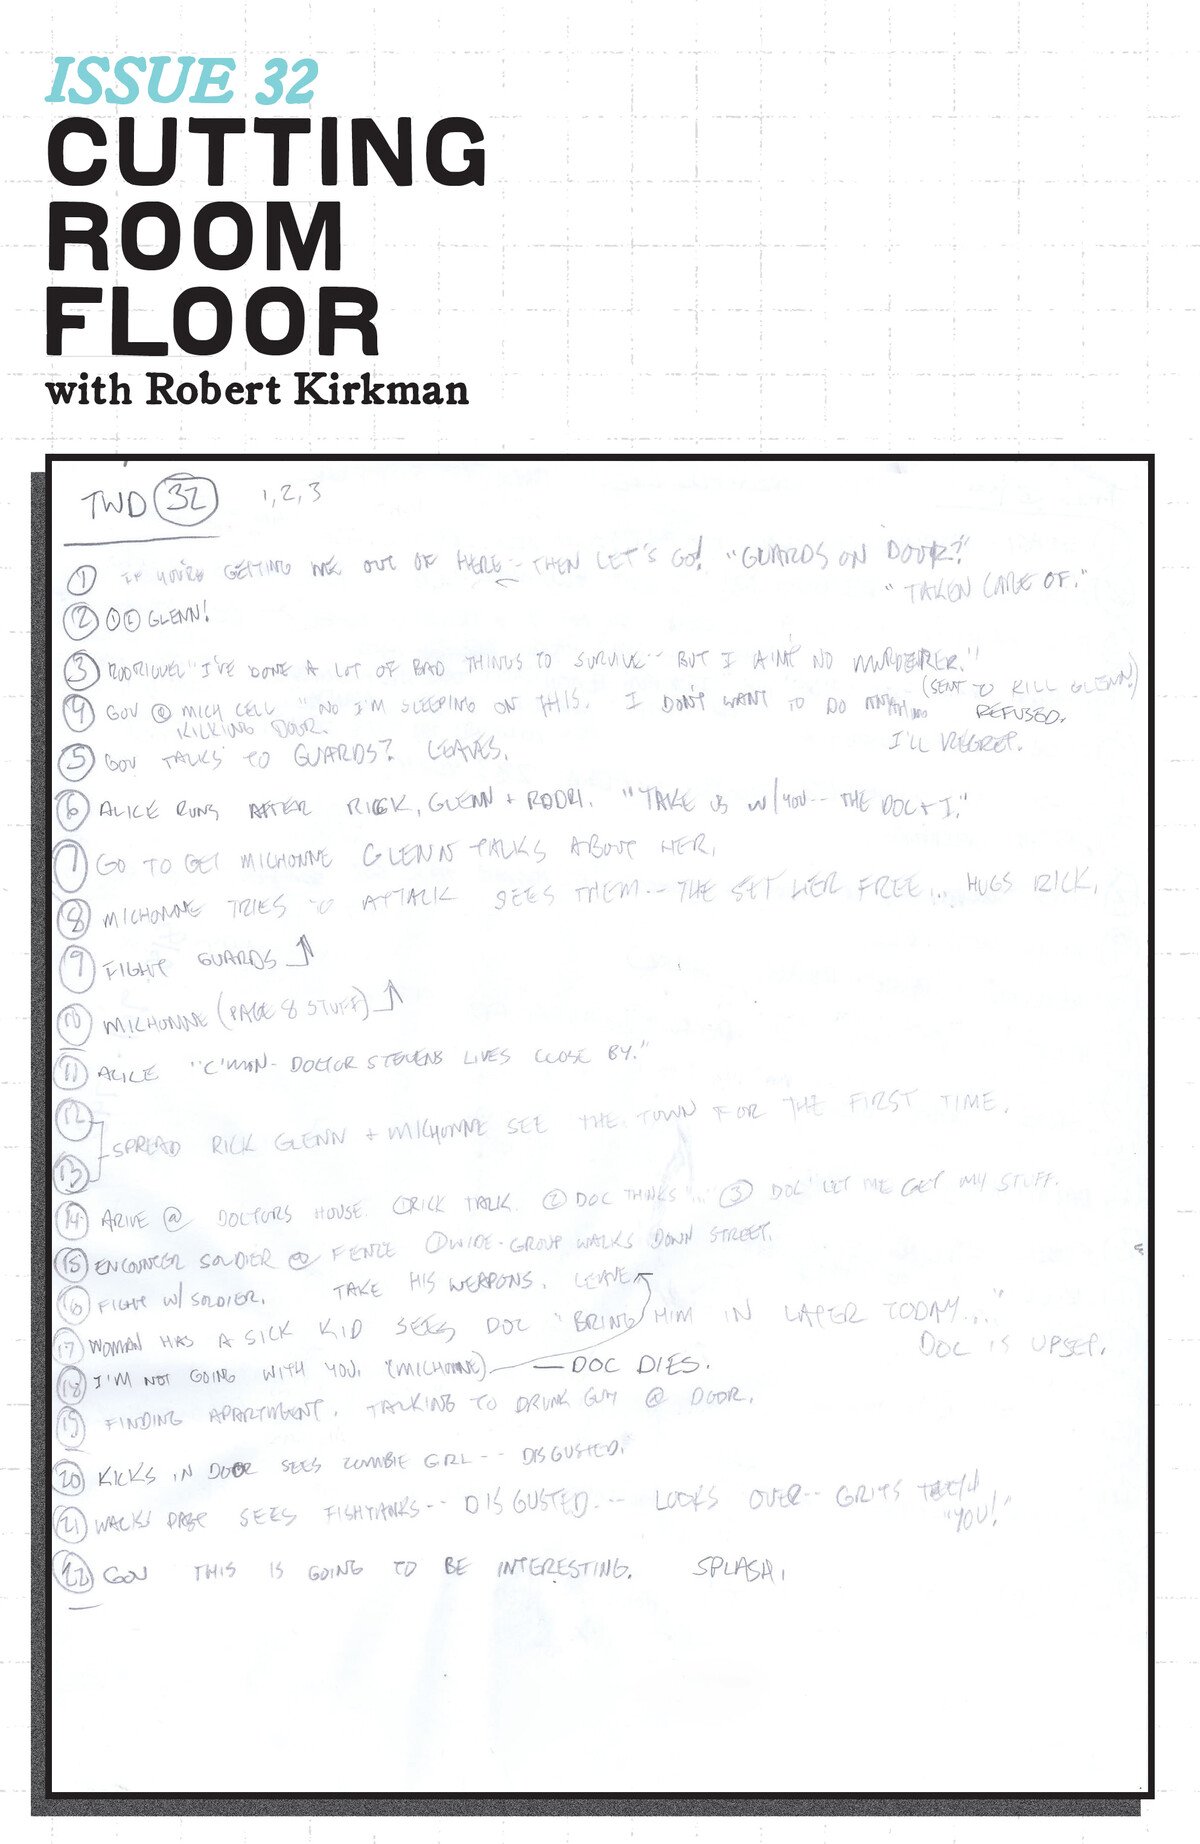 ISSUE 32
CUTTING
ROOM
FLOOR
with Robert Kirkman
TWD 32 1, 2, 3
1 IF YOU'RE GETTING ME OUT OF HERE -- THEN LET'S GO! "GUARDS ON DOOR?"
"TAKEN CARE OF."
2 GLENN!
3 "I'VE DONE A LOT OF BAD THINGS TO SURVIVE -- BUT I AIN'T NO MURDERER."
(SENT TO KILL GLENN!)
4 GOV @ MICH CELL "NO I'M SLEEPING ON THIS. I DON'T WANT TO DO REFUSED.
KICKING DOOR. I'LL REGRET.
5 GOV TALKS TO GUARDS? LEAVES.
6 ALICE RUNS AFTER RICK, GLENN + RODRI. "TAKE US W/YOU -- THE DOC + I."
7 GO TO GET MICHONNE GLENN TALKS ABOUT HER.
8 MICHONNE TRIES TO ATTACK SEES THEM -- THE SET HER FREE... HUGS RICK.
9 FIGHT GUARDS
10 MICHONNE (PAGE 8 STUFF)
11 ALICE "C'MON - DOCTOR STEVENS LIVES CLOSE BY."
12
SPREAD RICK GLENN + MICHONNE SEE THE TOWN FOR THE FIRST TIME.
13
14 ARIVE @ DOCTORS HOUSE. 1 RICK TALK. 2 DOC THINKS "..." 3 DOC "LET ME GET MY STUFF.
15 ENCOUNTER SOLDIER @ FENCE 1 WIDE - GROUP WALKS DOWN STREET.
16 FIGHT W/ SOLDIER. TAKE HIS WEAPONS. LEAVE
17 WOMAN HAS A SICK KID SEES DOC "BRING HIM IN LATER TODAY...."
DOC IS UPSET.
18 I'M NOT GOING WITH YOU. (MICHONNE) — DOC DIES.
19 FINDING APARTMENT. TALKING TO DRUNK GUY @ DOOR.
20 KICKS IN DOOR SEES ZOMBIE GIRL -- DISGUSTED.
21 WALKS PAST SEES FISHTANKS -- DISGUSTED. -- LOOKS OVER -- GRITS TEETH
"YOU!"
22 GOV THIS IS GOING TO BE INTERESTING. SPLASH.